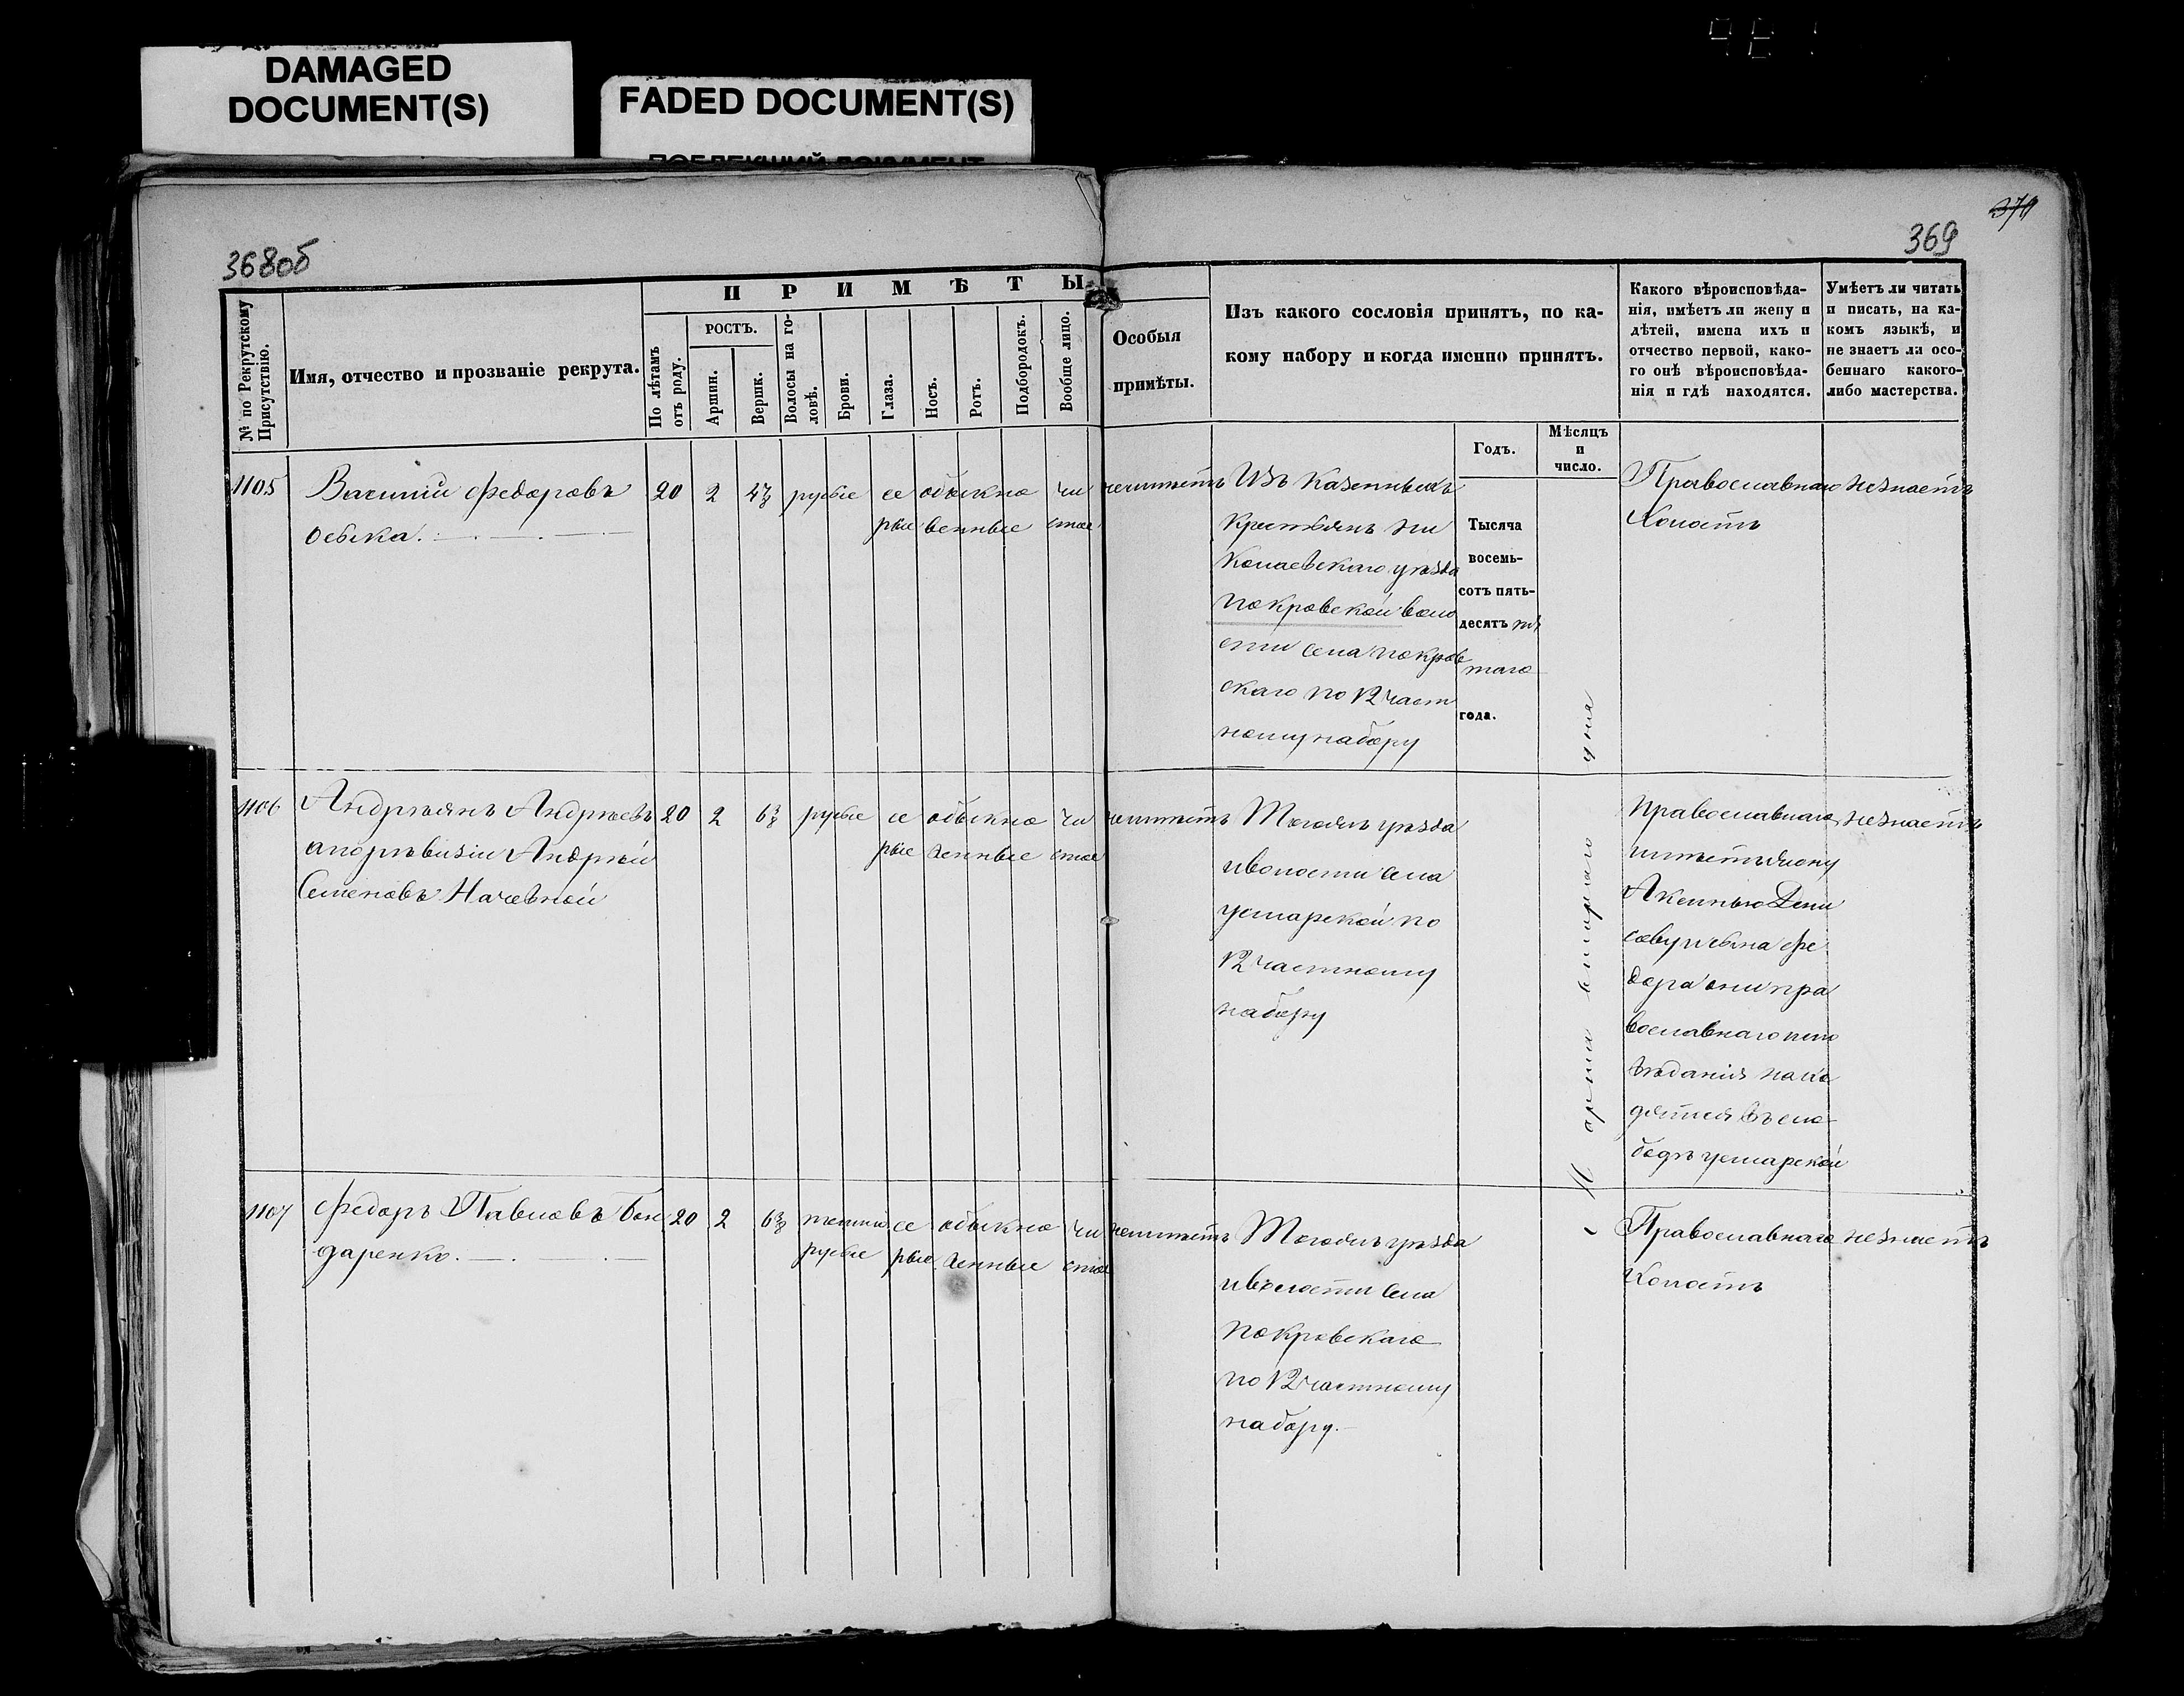 DAMAGED
DOCUMENT(S)
FADED DOCUMENT(S)
ПОБЛЕКШИЙ ДОКУМЕНТ
368об
371
369
№ по Рекрутскому
Присутствію.
Имя, отчество и прозваніе рекрута.
ПРИМѢТЫ
По лѣтамъ
отъ роду.
РОСТЪ.
Аршин.
Вершк.
Волосы на го-
ловѣ.
Брови.
Глаза.
Носъ.
Ротъ.
Подбородокъ.
Вообще лицо.
Особыя
примѣты.
Изъ какого сословія принятъ, по ка-
кому набору и когда именно принятъ.
Годъ.
Мѣсяцъ
и
число.
Какого вѣроисповѣда-
нія, имѣетъ ли жену и
дѣтей, имена ихъ и
отчество первой, како-
го онѣ вѣроисповѣда-
нія и гдѣ находятся.
Умѣетъ ли читать
и писать, на ка-
комъ языкѣ, и
не знаетъ ли осо-
беннаго какого-
либо мастерства.
1105
Василий Федоровъ
Осьека.
20 2 4 3/8 русые се обыкно чи
рые венные стое
неимѣетъ
Изъ Казенныхъ
Крестьянъ Ни
Колаевскаго уѣзда
Покровской воло
сти села Покров
скаго по 12 част
ному набору
Тысяча
восемь-
сотъ пять-
десятъ пя
таго
года.
Православнаго
Холостъ
незнаетъ
1106
Андреянъ Андреевъ
апоревизіи Андрей
Семеновъ Начевной
20 2 6 3/8 русые се обыкно чи
рые венные стое
неимѣетъ
Тогожъ уѣзда
иволости села
узморской по
12 частному
набору
Марта втораго дня
Православнаго
имѣетъ жону
Аксинью Дени
сову и сына Фе
дора они пра
вославнаго испо
вѣданія нахо
дятся въ сло
бодѣ узморской
незнаетъ
1107
Федоръ Павловъ Бон
даренко.
20 2 6 3/8 темно се обыкно чи
русые рые венные стое
неимѣетъ
Тогожъ уѣзда
иволости села
Покровскаго
по 12 частному
набору.
Православнаго
Холостъ
незнаетъ